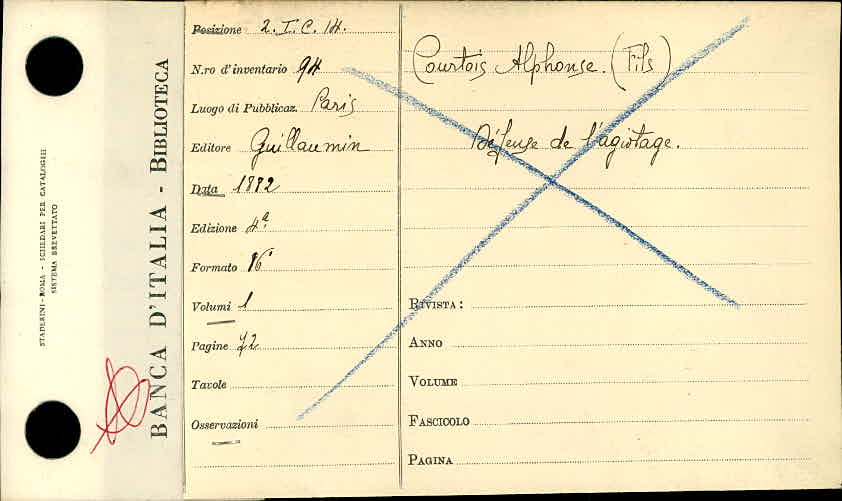 STADERINI-ROMA - SCHEDARI PER CATALOGHI
SISTEMA BREVETTATO
BANCA D'ITALIA - BIBLIOTECA
Posizione 2. I. C. 14.
N.ro d'inventario 94
Luogo di Pubblicaz. Paris
Editore Guillaumin
Data 1882
Edizione 4ª
Formato 16°
Volumi 1
Pagine 72
Tavole
Osservazioni
Courtois Alphonse. (Fils)
Défense de l'agiotage.
RIVISTA:
ANNO
VOLUME
FASCICOLO
PAGINA